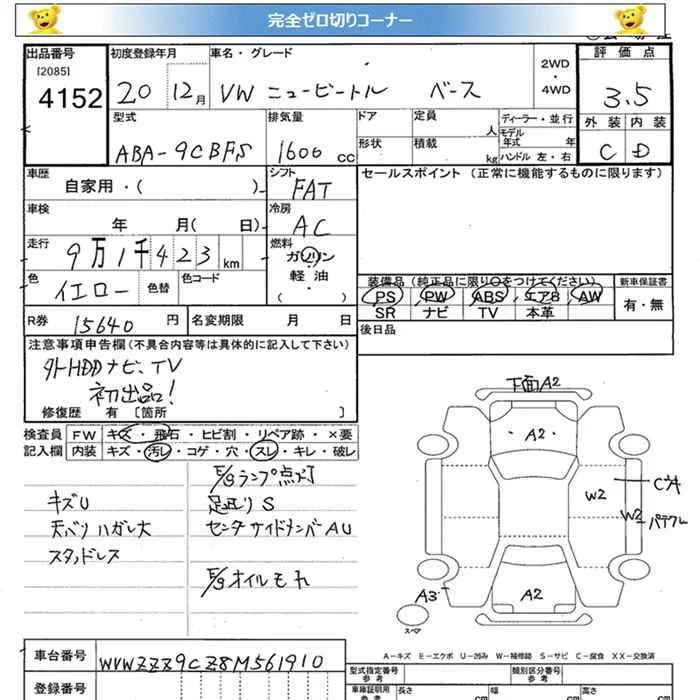 完全ゼロ切りコーナー
出品番号 初度登録年月 車名・グレード 2WD・4WD 評価点
[2085]
4152 20 12月 VW ニュービートル ベース 3.5
型式 排気量 ドア 定員 人 ディーラー・並行 外装 内装
ABA-9CBFS 1600 cc 形状 積載 kg モデル年式 年 ハンドル 左・右 C D
車歴 シフト セールスポイント (正常に機能するものに限ります)
自家用・( ) FAT
車検 冷房
年 月( 日) AC
走行 燃料
9万1千423km ガソリン
色 色替 色コード 軽・油
イエロー ( ・ )
装備品(純正品に限り○をつけてください) 新車保証書
PS PW ABS エアB AW 有・無
SR ナビ TV 本革
R券 15640円 名変期限 月 日 後日品
注意事項申告欄(不具合内容等は具体的に記入して下さい)
外HDDナビ、TV
初出品!
修復歴 有 [箇所 ]
検査員 FW キズ・飛石・ヒビ割・リペア跡・×要
記入欄 内装 キズ・汚レ・コゲ・穴・スレ・キレ・破レ
E/gランプ点灯
キズU 足廻りS
天バリハガレ大 センタサイドメンバAU
スタッドレス
E/gオイルモレ
下面A2
A2
W2
W2
A3
A2
スペア
A-キズ E-エクボ U-凹み W-補修跡 S-サビ C-腐食 XX-交換済
車台番号 WVWZZZ9CZ8M561910
登録番号
型式指定番号 参考 類別区分番号 参考
車検証明用 参考 長さ cm 幅 cm 高さ cm